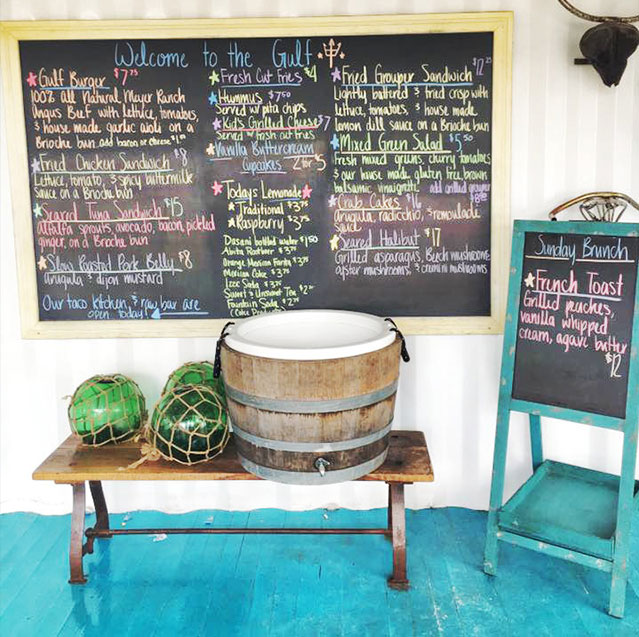 Welcome to the Gulf
Gulf Burger $7.75
100% all Natural Meyer Ranch
Angus Beef with lettuce, tomatoes,
& house made garlic aioli on a
Brioche bun add bacon or cheese $1.00
Fried Chicken Sandwich $8
Lettuce, tomato, & spicy buttermilk
Sauce on a Brioche bun
Seared Tuna Sandwich $15
alfalfa sprouts, avocado, bacon, pickled
ginger, on a Brioche bun
Slow Roasted Pork Belly $8
arugula & dijon mustard
Our taco kitchen, & raw bar are
open today!
Fresh Cut Fries $4
Hummus $7.50
Served w/ pita chips
Kid's Grilled Cheese $7
Served w/ fresh cut fries
Vanilla Buttercream
Cupcakes 2 for $5
Todays Lemonade
Traditional $3.75
Raspberry $3.75
Dasani bottled water $1.50
Abita Rootbeer $3.75
Orange Mexican Fanta $3.75
Mexican Coke $3.75
Izze Soda $3.75
Sweet & Unsweet Tea $2
Fountain Soda $2.75
(Coke Products)
Fried Grouper Sandwich $12.25
Lightly battered & fried crisp with
lettuce, tomatoes, & house made
lemon dill sauce on a Brioche bun
Mixed Green Salad $5.50
Fresh mixed greens, cherry tomatoes
& our house made, gluten free, brown
balsamic vinaigrette! add grilled grouper
$8
Crab Cakes $16
arugula, radicchio, & remoulade
sauce
Seared Halibut $17
Grilled asparagus, Beech mushrooms,
oyster mushrooms & cremini mushrooms
Sunday Brunch
French Toast
Grilled peaches,
vanilla whipped
cream, agave butter
$12